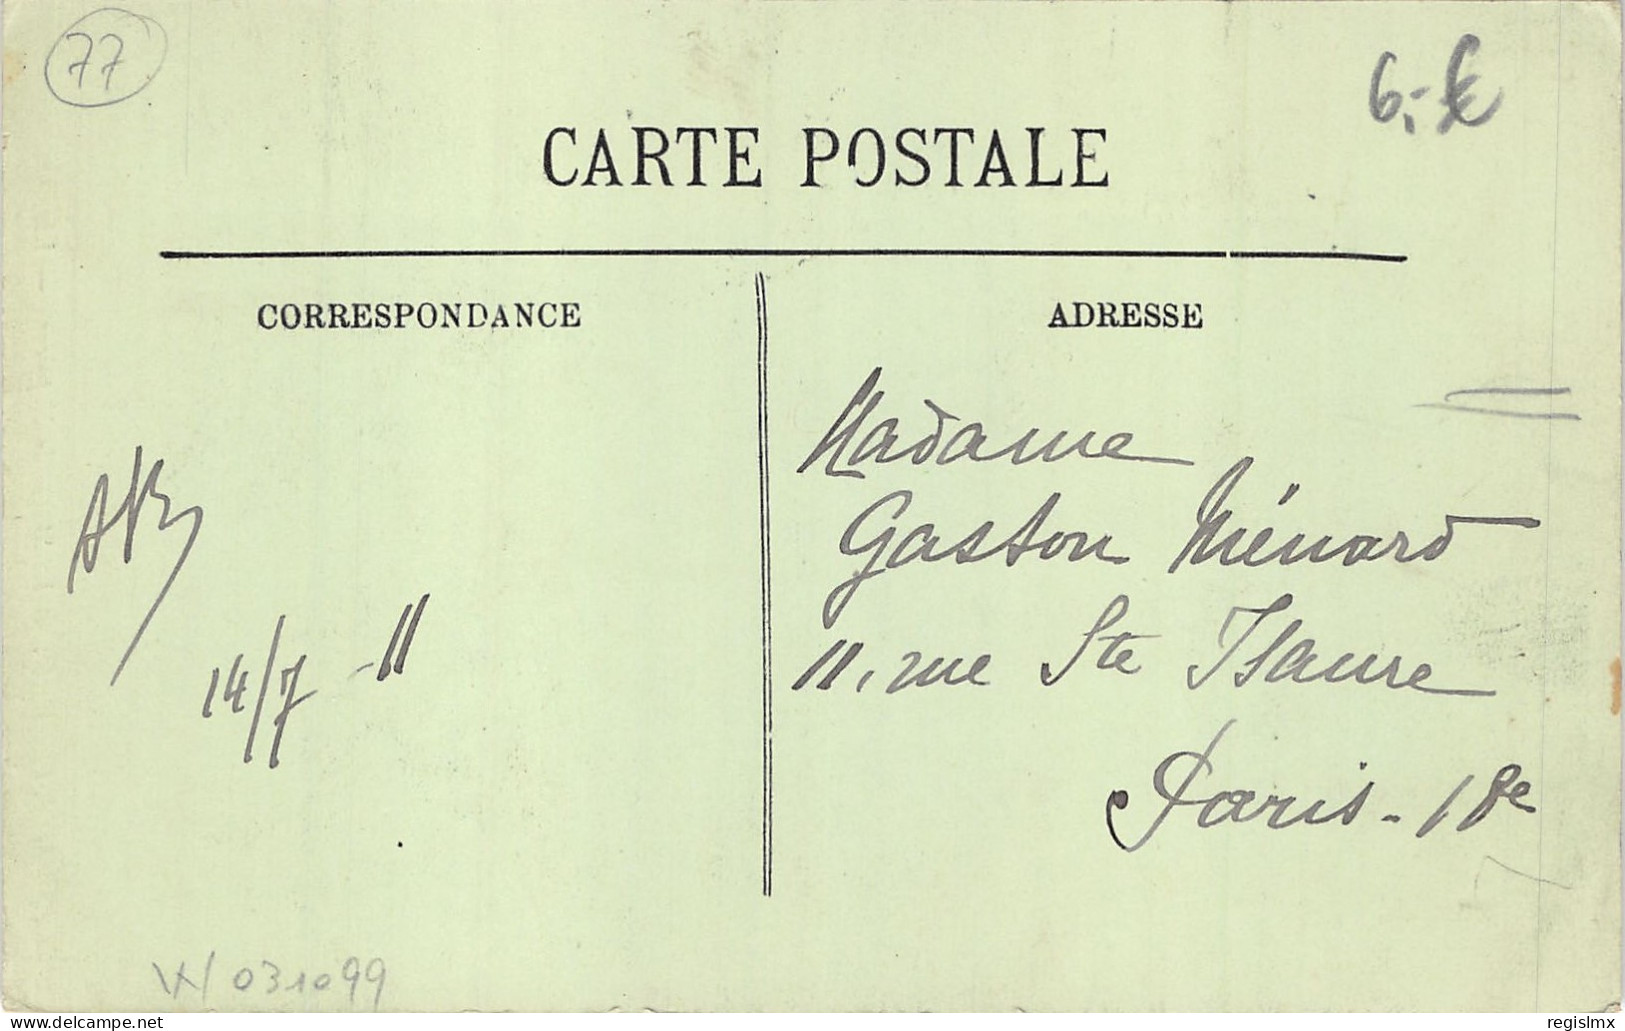 77
6,-€
CARTE POSTALE
CORRESPONDANCE
ADRESSE
Madame
Gaston Ménard
11, rue Ste Isaure
Paris - 18e
14/7 -11
031099
delcampe.net
regislmx